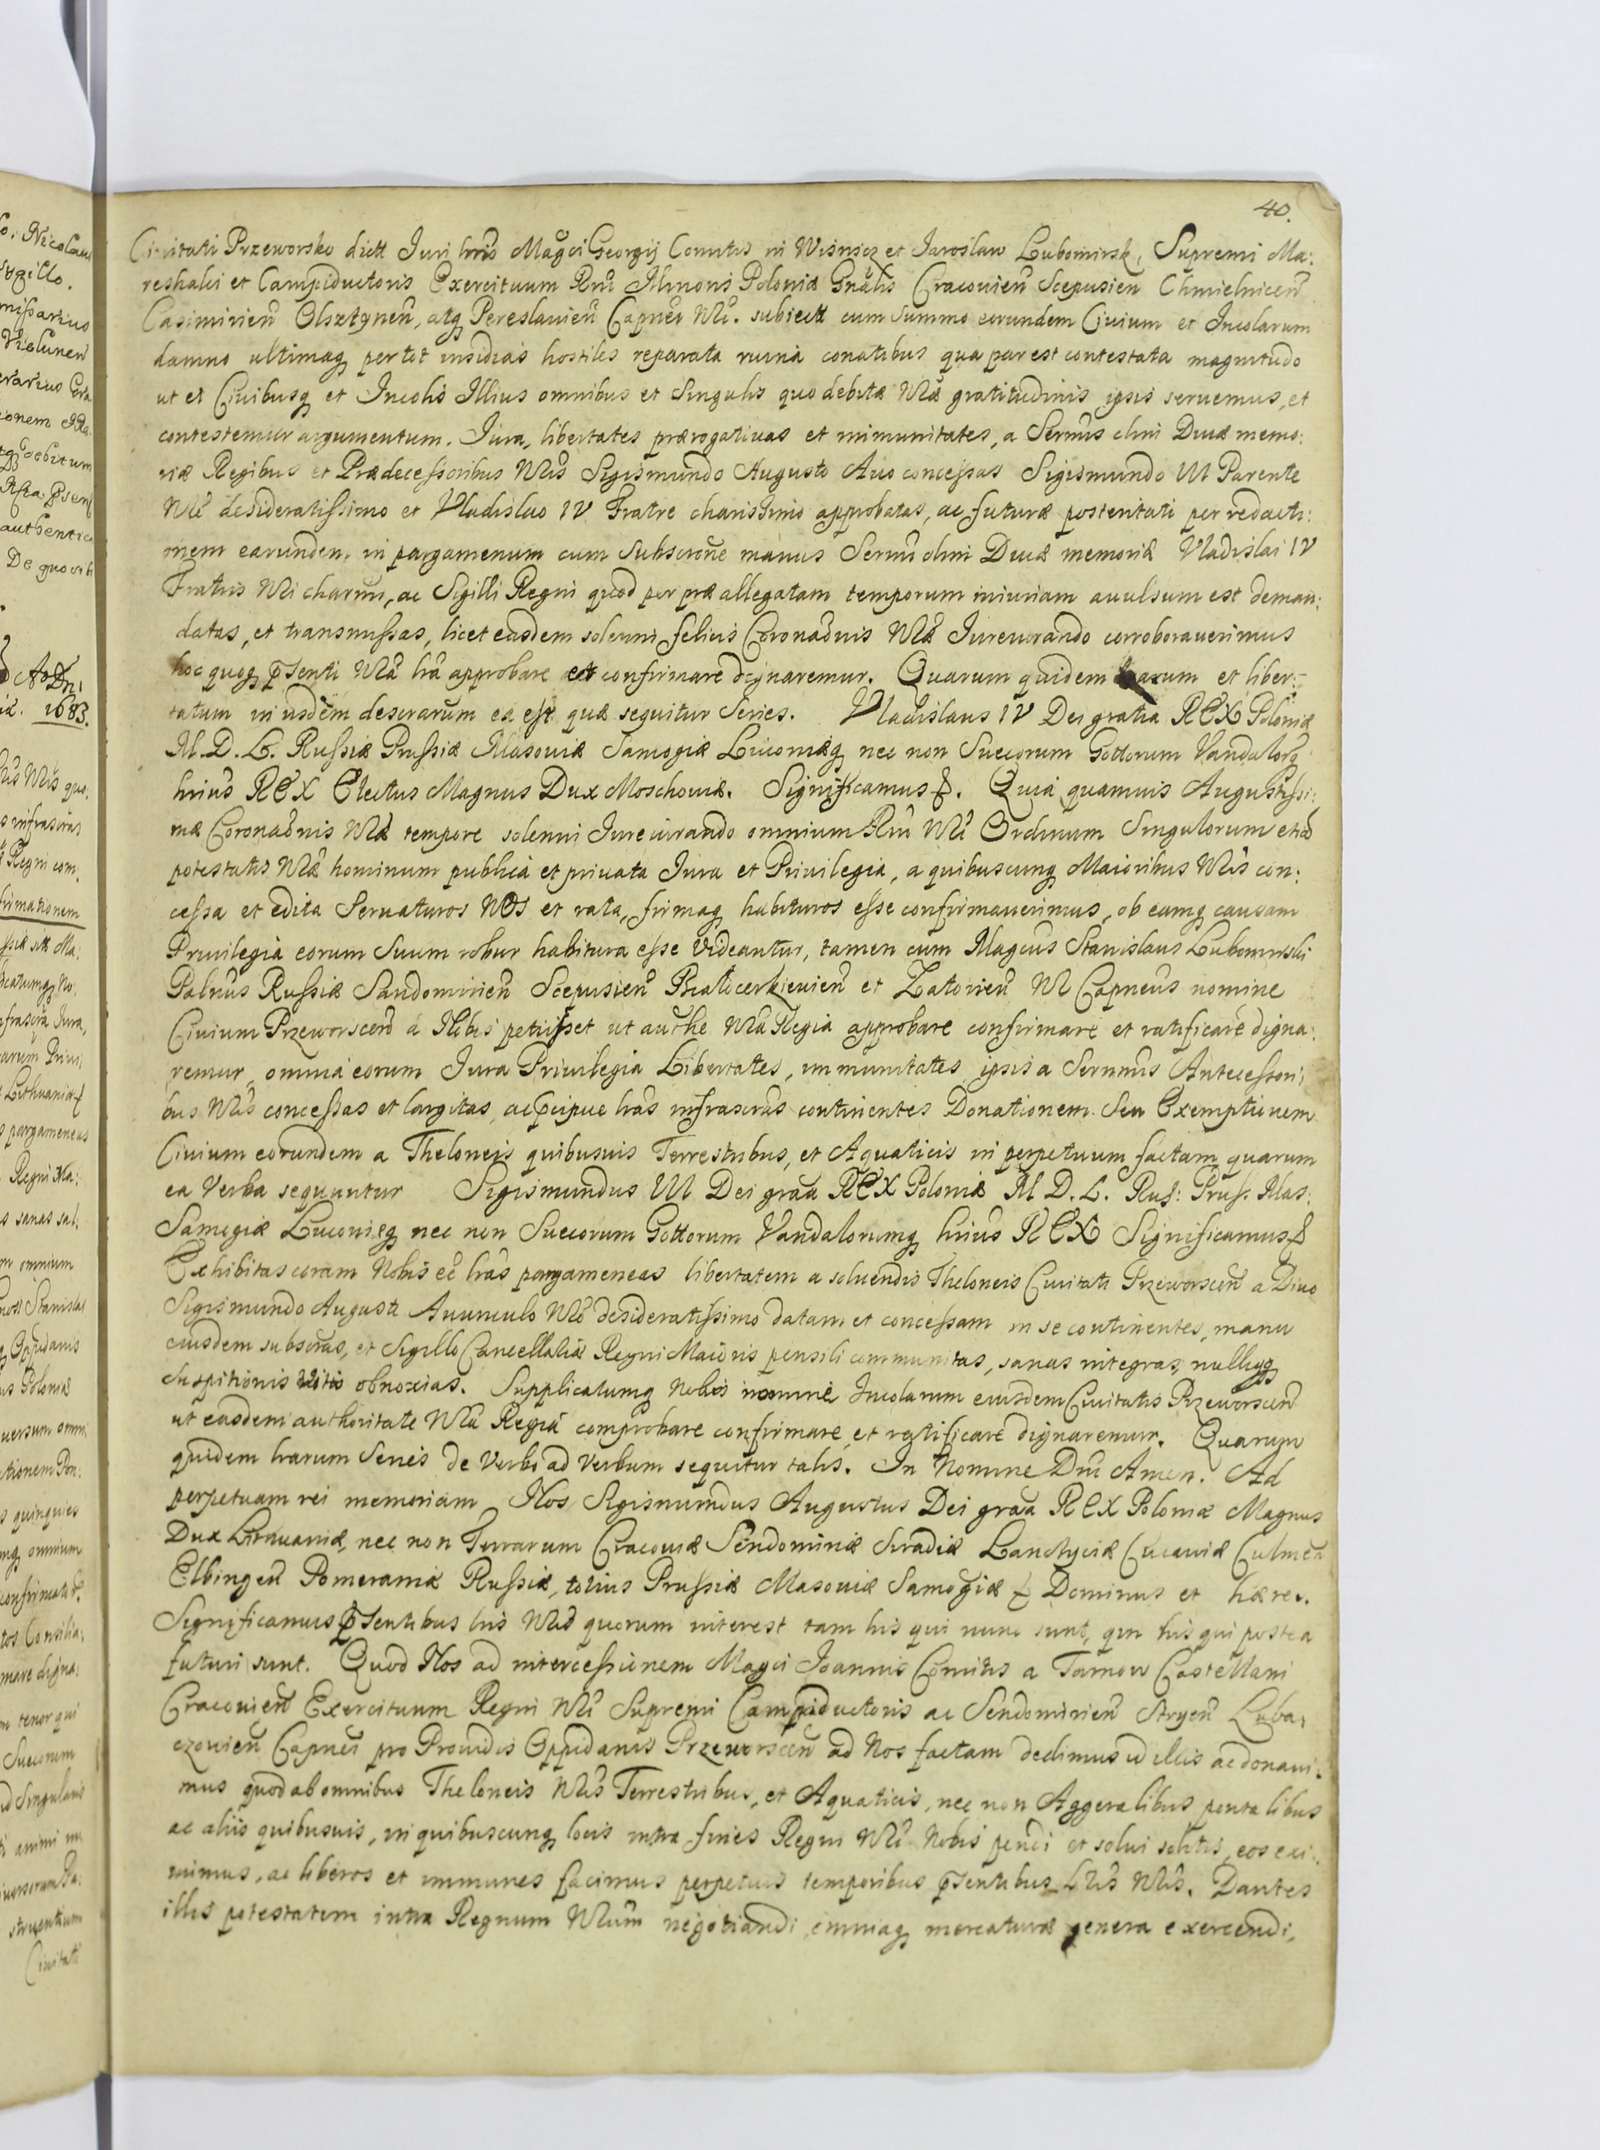 40.
Civitati Przeworsko dictt Juri hrio Magci Georgij Comitis in Wisnicz et Jaroslaw Lubomirsk. Supremi Ma:
reshalci et Campiductoris Exercituum Rni Minoris Poloniæ Gnalis Cracovien Scepusien Chmielnicen
Casimirien Olsztynen, atq Pereslavien Capnei Nri. subiectt cum summo eorundem Civium et Incolarum
damno ultimaq per tot insidias hostiles reparata ruina conatibus qua par est contestata magnitudo
ut et Civibusq et Incolis Illius omnibus et Singulis quo debitæ Nræ gratitudinis ipsis servemus, et
contestemur argumentum. Jura, libertates prærogativas et immunitates, a Sermis olim Divæ memo:
riæ Regibus et Prædecessoribus Nris Sigismundo Augusto Avo concessas Sigismundo III Parente
Nro desideratissimo et Vladislao IV Fratre charissimo approbatas, ac futuræ posteritati per redacti:
onem earundem in pargamenum cum Subscrone manus Sermi olim Divæ memoriæ Vladislai IV
Fratris Nri charmi, ac Sigilli Regni quod per præallegatam temporum iniuriam avulsum est deman:
datas, et transmissas, licet easdem solenni felicis Coronaonis Nræ Jureiurando corroboraverimus
hoc quoq psenti Nra lra approbare et confirmare dignaremur. Quarum quidem lrarum et liber:
tatum in iisdem descrarum ea est quæ sequitur Series. Vladislaus IV Dei gratia REX Poloniæ
M. D. L. Russiæ Prussiæ Masoviæ Samogiæ Livoniæq nec non Suecorum Gottorum Vandalorq
hrius REX Electus Magnus Dux Moschoviæ. Significamus &. Quia quamvis Augustissi:
mæ Coronaonis Nræ tempore solenni Jureiurando omnium Rni Nri Ordinum Singulorum etia
potestatis Nræ hominum publica et privata Jura et Privilegia, a quibuscunq Maioribus Nris con:
cessa et edita Servaturos NOS et rata, firmaq habituros esse confirmaverimus, ob eamq causam
Privilegia eorum Suum robur habitura esse videantur, tamen cum Magcus Stanislaus Lubomirski
Palnus Russiæ Sandomirien Scepusien Bialocerkievien et Zatorien Nr Capneus nomine
Civium Przeworscen a Nobis petiisset ut authe Nra Regia approbare confirmare et ratificare digna:
remur, omnia eorum Jura Privilegia Libertates, immunitates ipsis a Sermis Antecessori:
bus Nris concessas et largitas, ac pcipue lras infrascras continentes Donationem Seu Exemptionem
Civium eorundem a Theloneis quibusvis Terrestribus, et Aquaticis in perpetuum factam quarum
ea Verba sequuntur Sigismundus III Dei graa REX Poloniæ M D. L. Rus: Pruss. Mas.
Samogiæ Livoniæq nec non Suecorum Gottorum Vandalorumq hrius REX Significamus &
Exhibitas coram Nobis ee lras pargameneas libertatem a solvendis Theloneis Civitati Przeworscen a Divo
Sigismundo Augusto Avunculo Nro desideratissimo datam et concessam in se continentes, manu
eiusdem subscras, et Sigillo Cancellariæ Regni Maioris pensili communitas, sanas integras, nulliq
Suspitionis vitio obnoxias. Supplicatumq Nobis nomine Incolarum eiusdem Civitatis Przeworscen
ut easdem authoritate Nra Regia comprobare confirmare et ratificare dignaremur. Quarum
quidem lrarum Series de Verbo ad Verbum sequitur talis. In Nomine Dni Amen. Ad
perpetuam rei memoriam Nos Sigismundus Augustus Dei graa REX Poloniæ Magnus
Dux Lithuaniæ, nec non Terrarum Cracoviæ Sendomiriæ Siradiæ Lanciciæ Cuiaviæ Culmen
Elbingen Pomeraniæ Russiæ, totius Prussiæ Masoviæ Samogiæ & Dominus et hæres.
Significamus psentibus lris Nris quorum interest tam his qui nunc sunt, qm his qui postea
futuri sunt. Quod Nos ad intercessionem Magci Joannis Comitis a Tarnow Castellani
Cracovien Exercituum Regni Nri Supremi Campiductoris ac Sendomirien Stryen Luba:
czovien Capnei pro Providis Oppidanis Przeworscen ad Nos factam dedimus id illis ac donavi:
mus quod ab omnibus Theloneis Nris Terrestribus, et Aquaticis, nec non Aggeralibus pontalibus
ac aliis quibusvis, in quibuscunq locis intra fines Regni Nri Nobis pendi et solui solitis, eos exi:
mimus, ac liberos et immunes facimus perpetuis temporibus psentibus Lris Nris. Dantes
illis potestatem intra Regnum Nrum negotiandi, omniaq mercaturæ genera exercendi,
Ao Dni
1683.
Civitati